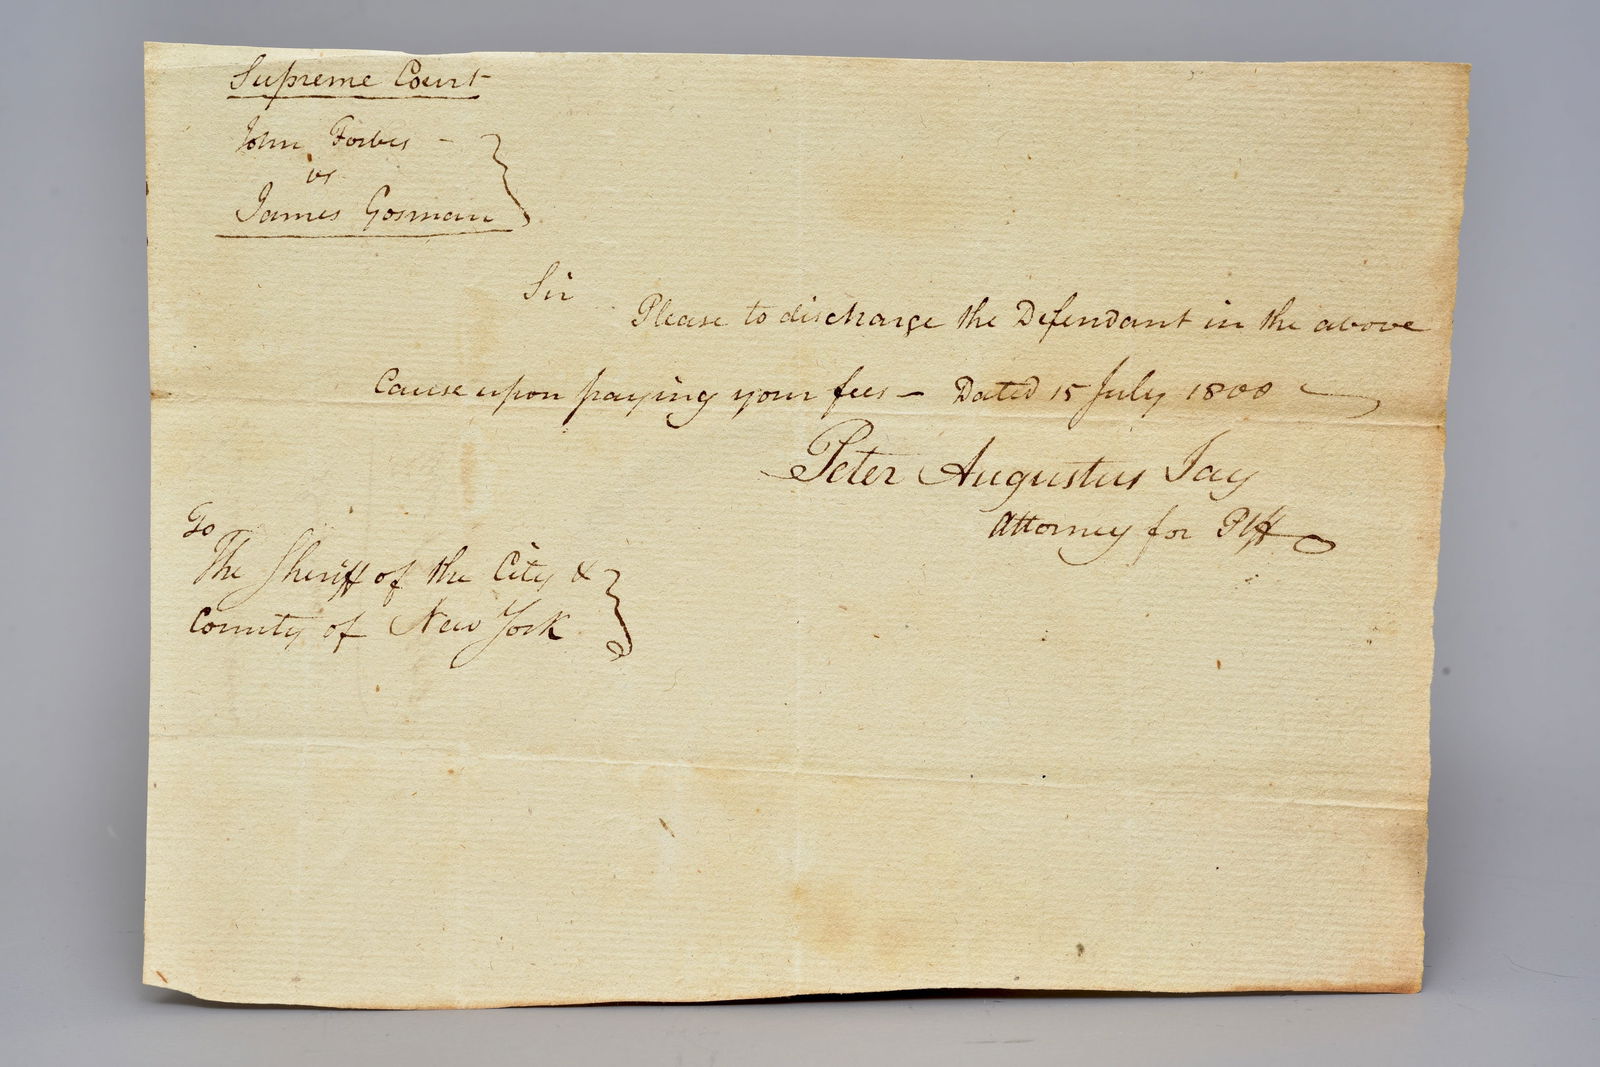 Supreme Court
John Forbes –
vs
James Gosman
Sir
Please to discharge the Defendant in the above
Cause upon paying your fees – Dated 15 July 1800
Peter Augustus Jay
Attorney for Plff
To
The Sheriff of the City &
County of New York